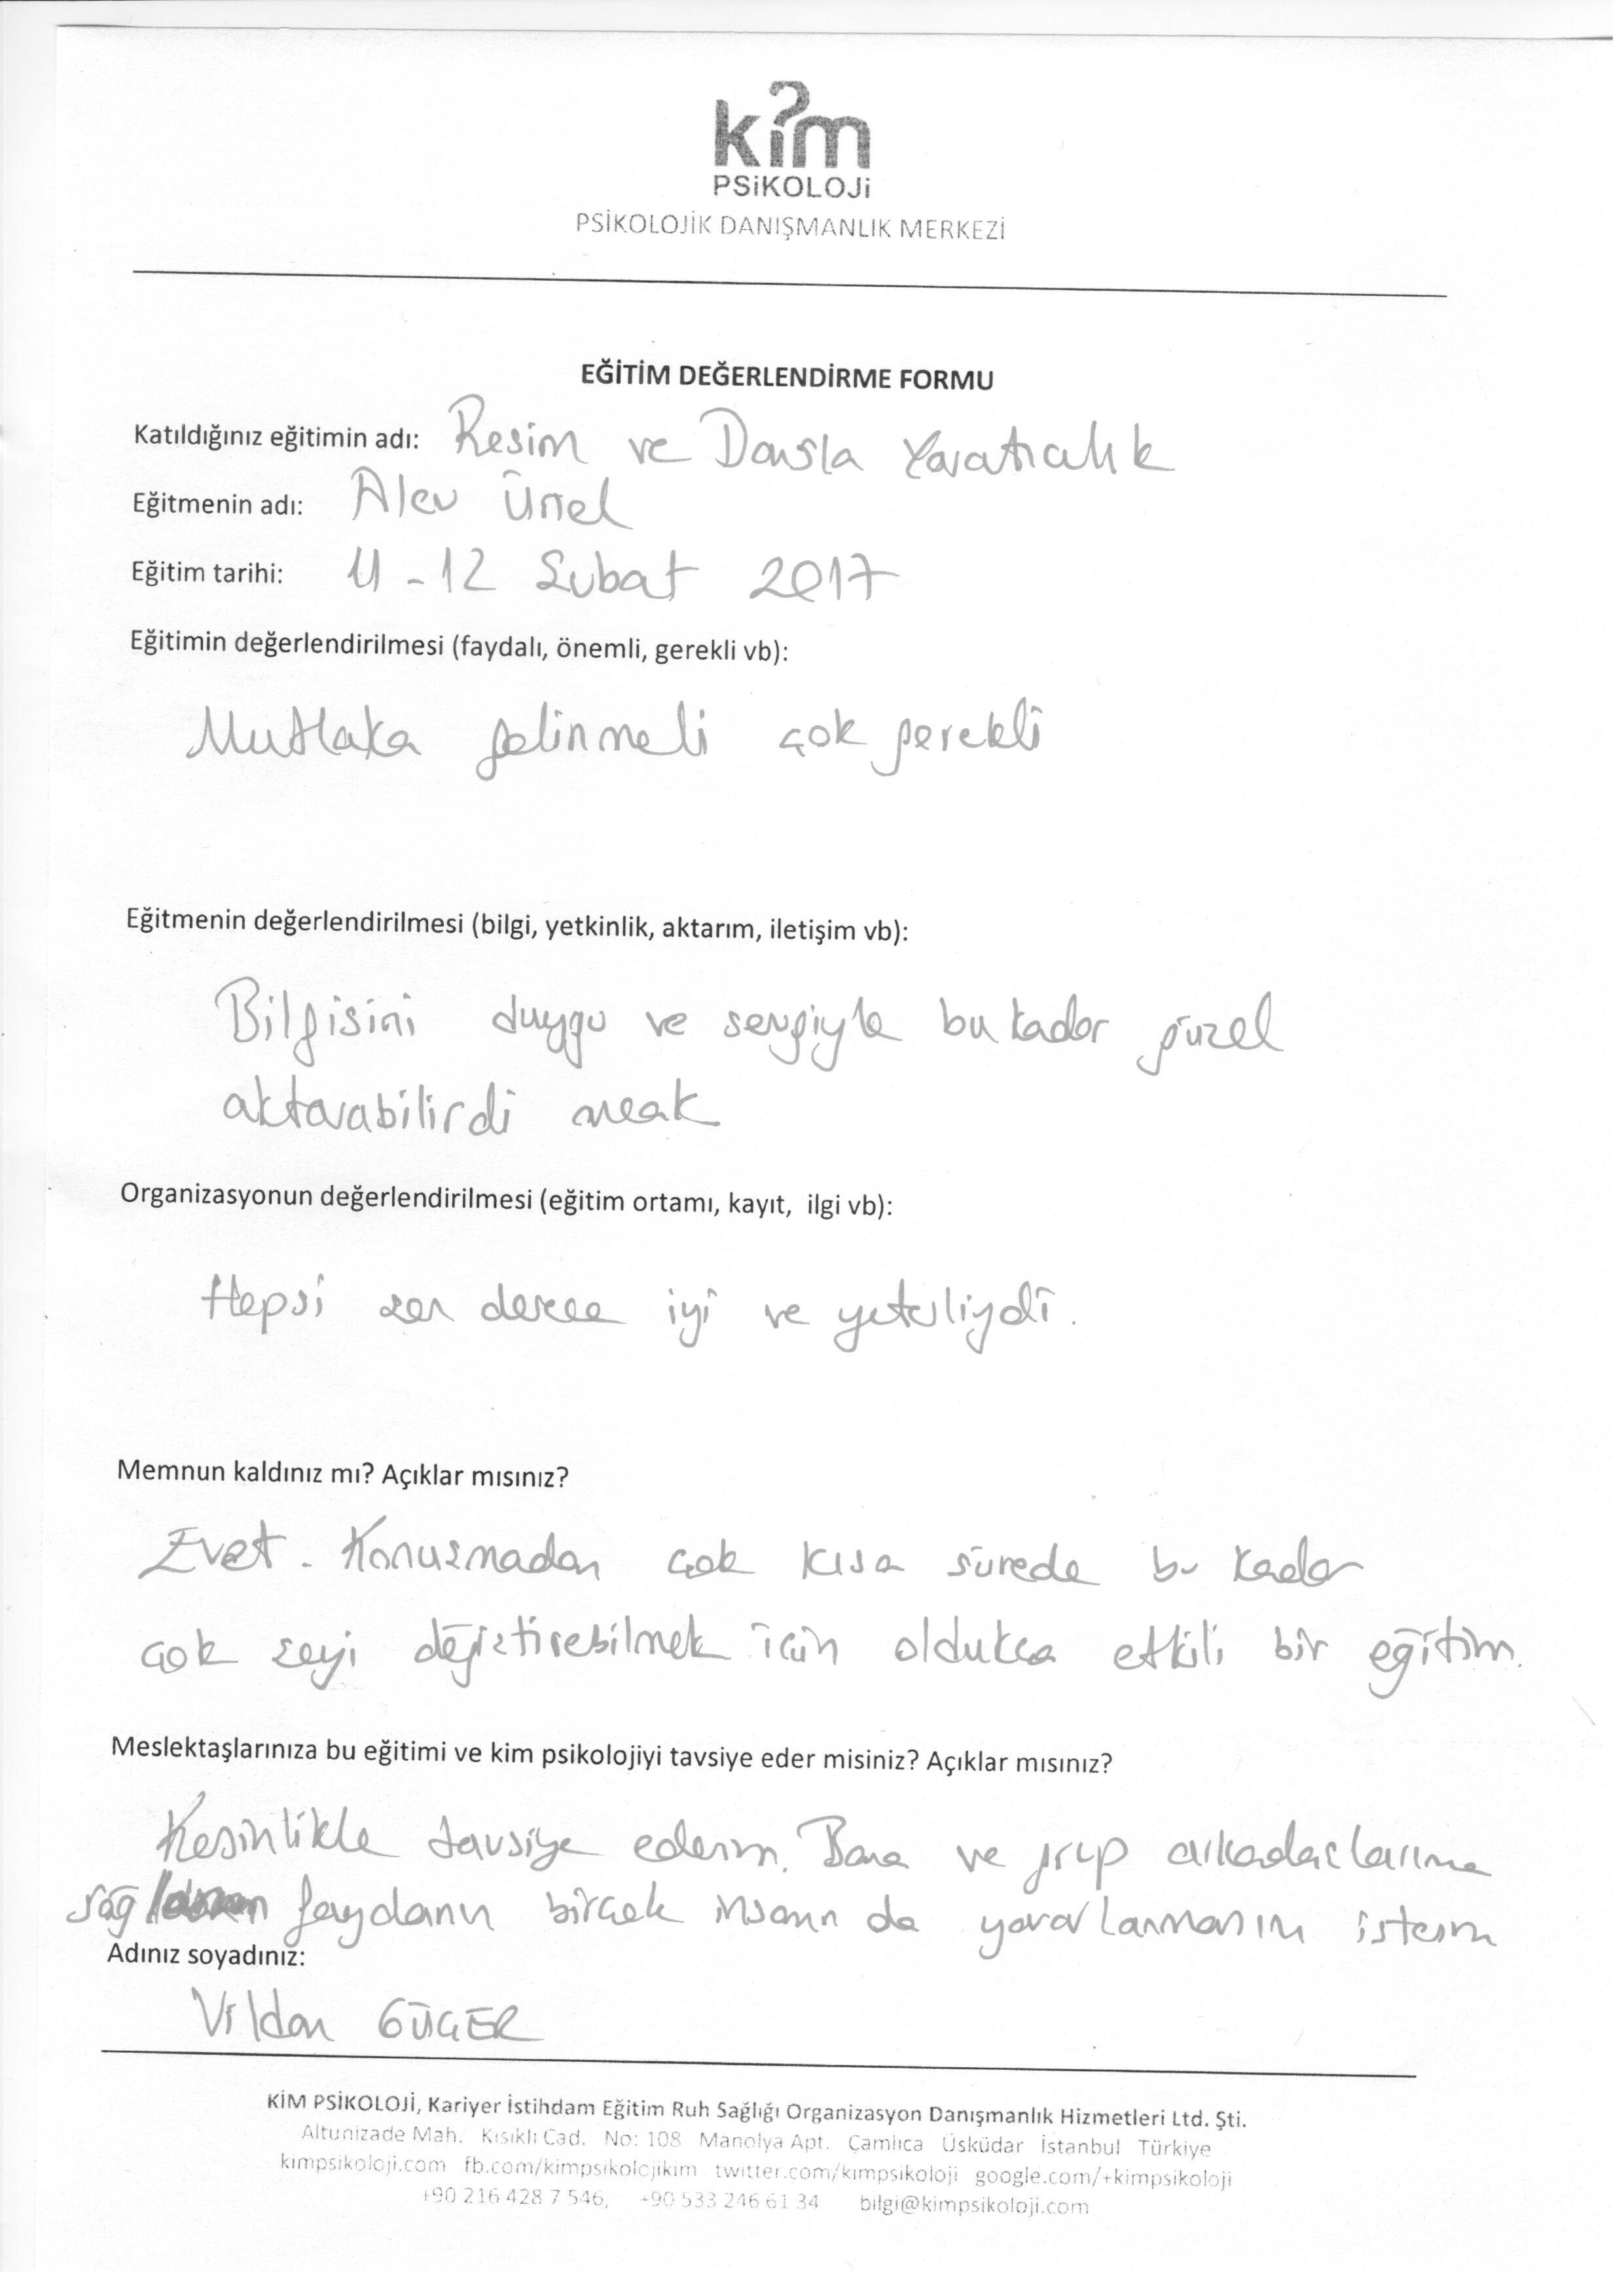 kim
PSiKOLOJi
PSİKOLOJİK DANIŞMANLIK MERKEZİ
EĞİTİM DEĞERLENDİRME FORMU
Katıldığınız eğitimin adı: Resim ve Dansla Yaratıcılık
Eğitmenin adı: Alev Ünel
Eğitim tarihi: 11-12 Şubat 2017
Eğitimin değerlendirilmesi (faydalı, önemli, gerekli vb):
Mutlaka gelinmeli çok gerekli
Eğitmenin değerlendirilmesi (bilgi, yetkinlik, aktarım, iletişim vb):
Bilgisini duygu ve sevgiyle bu kadar güzel
aktarabilirdi ancak
Organizasyonun değerlendirilmesi (eğitim ortamı, kayıt, ilgi vb):
Hepsi son derece iyi ve yeterliydi.
Memnun kaldınız mı? Açıklar mısınız?
Evet. Konuşmadan çok kısa sürede bu kadar
çok şeyi değiştirebilmek için oldukça etkili bir eğitim.
Meslektaşlarınıza bu eğitimi ve kim psikolojiyi tavsiye eder misiniz? Açıklar mısınız?
Kesinlikle tavsiye ederim. Bana ve grup arkadaşlarıma
sağlanan faydanın birçok insanın da yararlanmasını isterim
Adınız soyadınız:
Vildan GÜÇER
KİM PSİKOLOJİ, Kariyer İstihdam Eğitim Ruh Sağlığı Organizasyon Danışmanlık Hizmetleri Ltd. Şti.
Altunizade Mah. Kısıklı Cad. No: 108 Manolya Apt. Çamlıca Üsküdar İstanbul Türkiye
kimpsikoloji.com fb.com/kimpsikolojikim twitter.com/kimpsikoloji google.com/+kimpsikoloji
+90 216 428 7 546, +90 533 246 61 34 bilgi@kimpsikoloji.com